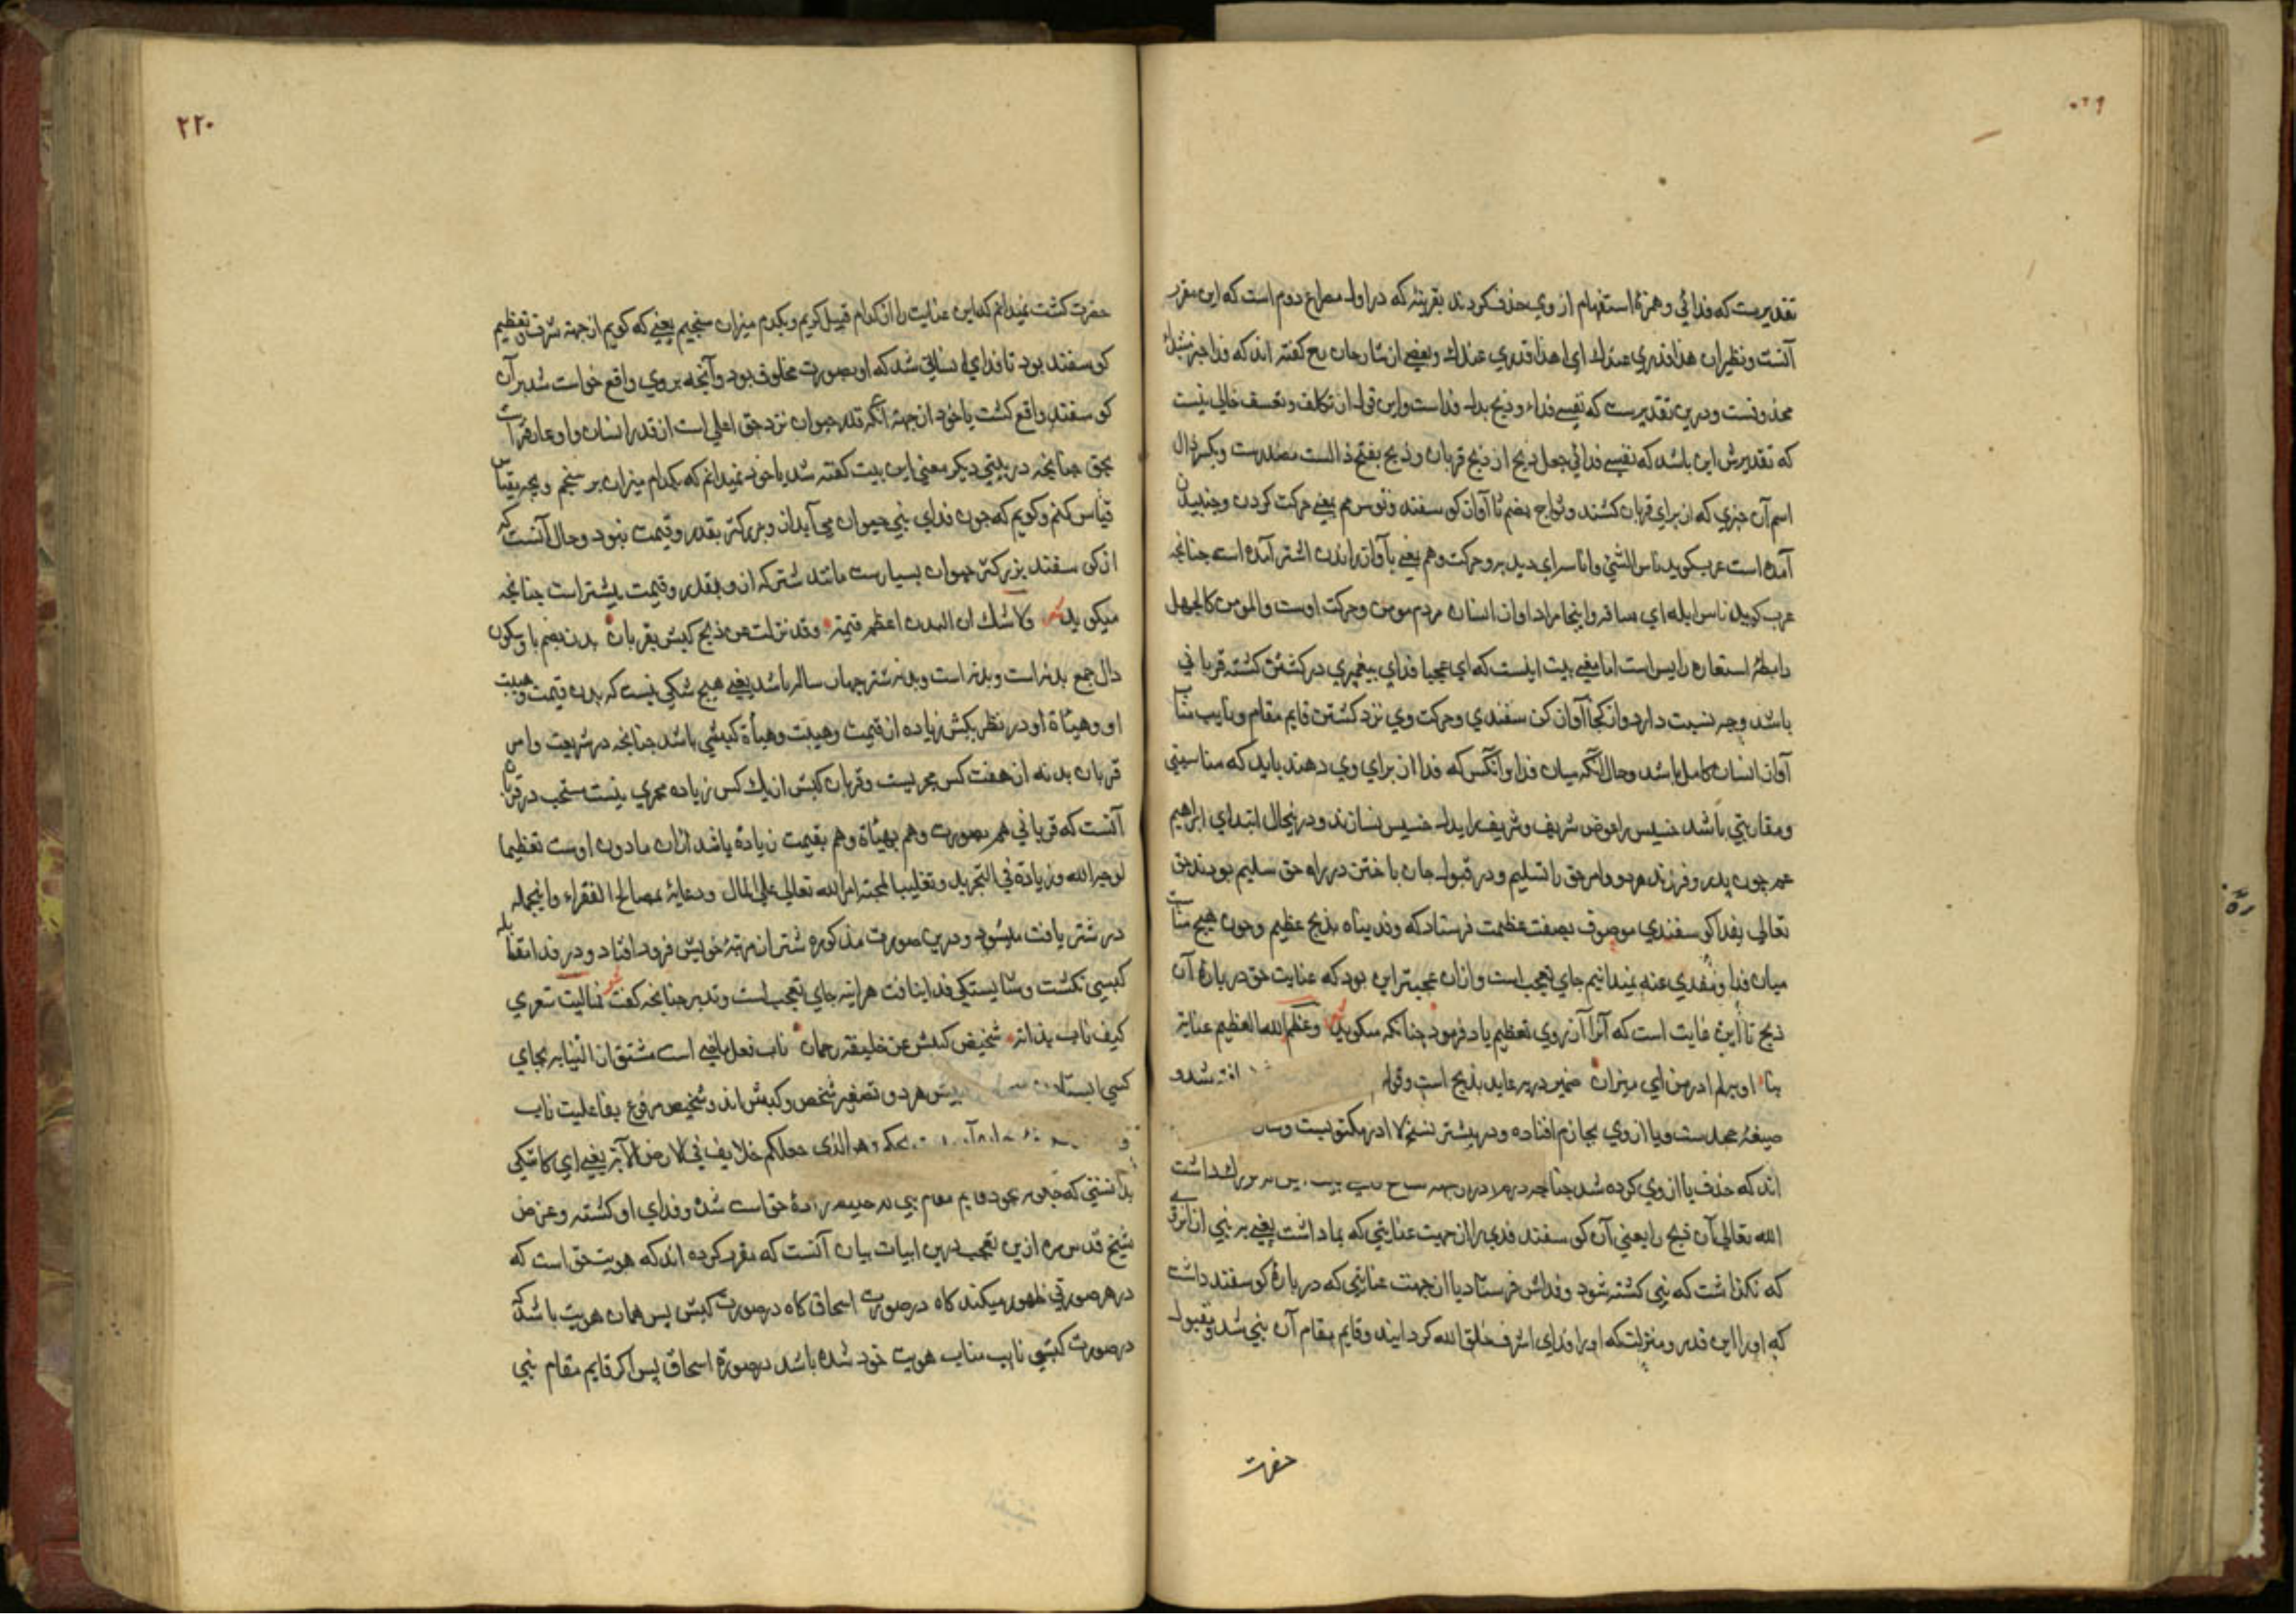 تقدیرست که فدائی و همزهٔ استفهام از وی حذف کردند بقرینهٔ که در اول مصراع دوم است که این مقرر
آنست و نظیر این هذا قدری عندك ای اهذا قدری عندك و بعضی از شارحان گفته اند که فدا خبر مبتدا
محذوفست و درین تقدیرست که نفسی فداء و ذبح بدل فداست و این قول از تکلف و تعسف خالی نیست
که تقدیرش این باشد که نفسی فدائی جعل ذبح از ذبح قربان و ذبح بفتح ذالست مصدرست و بکسر ذال
اسم آن چیزی که از برای قربان کشند و ثواج بضم ثا آواز کوسفند و نوس هم یعنی حرکت کردن و جنبیدن
آمده است عرب کوید ناس الشئ واناسرای دید برو حرکت و هم یعنی بآواز راندن اشتر آمده است چنانچه
عرب کوید ناس ابله ای ساقه واینجا مراد اواز انسان مردم مومن و حرکت اوست والمومن کالجمل
رابطهٔ استعاره را بس است اما معنی بیت اینست که ای عجبا فدای پیغمبری در کشتن کشتهٔ قربانی
باشد و چه نسبت دارد و از کجا آواز کوسفندی و حرکت وی نزد کشتن قایم مقام و نایب مناب
آواز انسان کامل باشد و حال آنکه میان فدا و آنکس که فدا از برای وی دهند باید که مناسبتی
و مقاربتی باشد خسیس را عوض شریف و شریف را بدل خسیس نسازند و درینحال ابتدای ابراهیم
عم چون پدر و فرزند هردو امر حق را تسلیم و در قبول جان باختن در راه حق سلیم بودند حق
تعالی بفدا کوسفندی موصوف بصفت عظمت فرستاد که وفدیناه بذبح عظیم و چون هیچ مناسبت
میان فدا و مفدی عنه نمیدانیم جای تعجب است و ازان عجبتر این بود که عنایت حق در بارهٔ آن
ذبح تا این غایت است که آنرا از روی تعظیم یاد فرمود چنانکه میکوید وعظمه الله العظیم عنایة
بنا او به لم ادر من ای میزان ضمیر در به عاید بذبح است وقوله
صیغهٔ مجدست و یا از وی بجازم افتاده و در بیشتر نسخ لا ادر مکتوبست
اند که حذف یا از وی کرده شد چنانچه در
الله تعالی آن ذبح را یعنی آن کوسفند فدی را از جهت عنایتی که بما داشت یعنی بر نبی ازانرو
که نکذاشت که نبی کشته شود و فداش فرستاد یا از جهت عنایتی که در بارهٔ کوسفند داشت
که او را این قدر و منزلت که او را فدای اشرف خلق الله کردانیند و قایم مقام آن نبی شد و مقبول
حضرت
٢٢٠
حضرت کشت نمیدانم که این عنایت را از کدام قبیل کریم و بکدام میزان سنجیم یعنی که کویم از جهة شرف و تعظیم
کوسفند بود تا فدای انسانی شد که او بصورت مخلوق بود و آنچه بر وی واقع خواست شد بر آن
کوسفند واقع کشت یا خود از جهة آنکه قدر حیوان نزد حق اعلی است از قدر انسان و او عارفتر است
بحق چنانچه در بیتی دیکر معنی این بیت کفته شد یا خود نمیدانم که بکدام میزان بر سنجم و بچه قیاس
قیاس کنم و کویم که چون فدای نبی حیوان می آید از وی بزرکتر بقدر و قیمت نبود و حال آنست که
از کوسفند بزرکتر حیوان بسیارست مانند شتر که از و بقدر و قیمت بیشتر است چنانچه
میکوید ولا شك ان البدن اعظم قیمة وقد نزلت عن ذبح کبش بقربان بدن بضم با و سکون
دال جمع بدنه است و بدنه شتر چهار ساله باشد یعنی هیچ شکی نیست که بدن قیمت و هیبت
او و هیئاة او در نظر بکبش زیاده از قیمت و هیبت و هیأة کبشی باشد چنانچه در شریعت وامر
قربان بدنه از هفت کس مجزیست و قربان کبش از یك کس زیاده مجزی نیست مستحب در قربان
آنست که قربانی هم بصورت و هم بهیئاة و هم بقیمت زیاده باشد ازان مادون اوست تعظیما
لوجه الله وزیادة فی التجرید وتغلیبا لمحبة امر الله تعالی علی المال ورعایة لمصالح الفقراء و اینجمله
در شتر یافت میشود و درین صورت مذکوره شتر از مرتبهٔ خویش فرود افتاد و در فدا مقابله
کبشی نکشت و شایستکی فدا نیافت هر اینه جای تعجب است و تدبر چنانچه کفت فیالیت شعری
کیف ناب بذاته شخیص کبیش عن خلیفة رحمان ناب فعل ماضی است مشتق از النیابه بجای
کسی ایستادن هردو تصغیر شخص و کبش اند و شخیص مرفوع بفاعلیت ناب
وهو الذی جعلکم خلایف فی الارض الآیة یعنی ای کاشکی
بدانستی که چون بوجود قایم مقام نبی حق است شده و فدای او کشته و غرض
شیخ قدس سره ازین تعجب درین ابیات بیان آنست که مقرر کرده اند که هویت حق است که
در هر صورتی ظهور میکند کاه در صورت اسحاق کاه در صورت کبش پس همان هویت باشد که
در صورت کبشی نایب مناب هویت خود شده باشد در صورة اسحاق پس اکر قایم مقام نبی